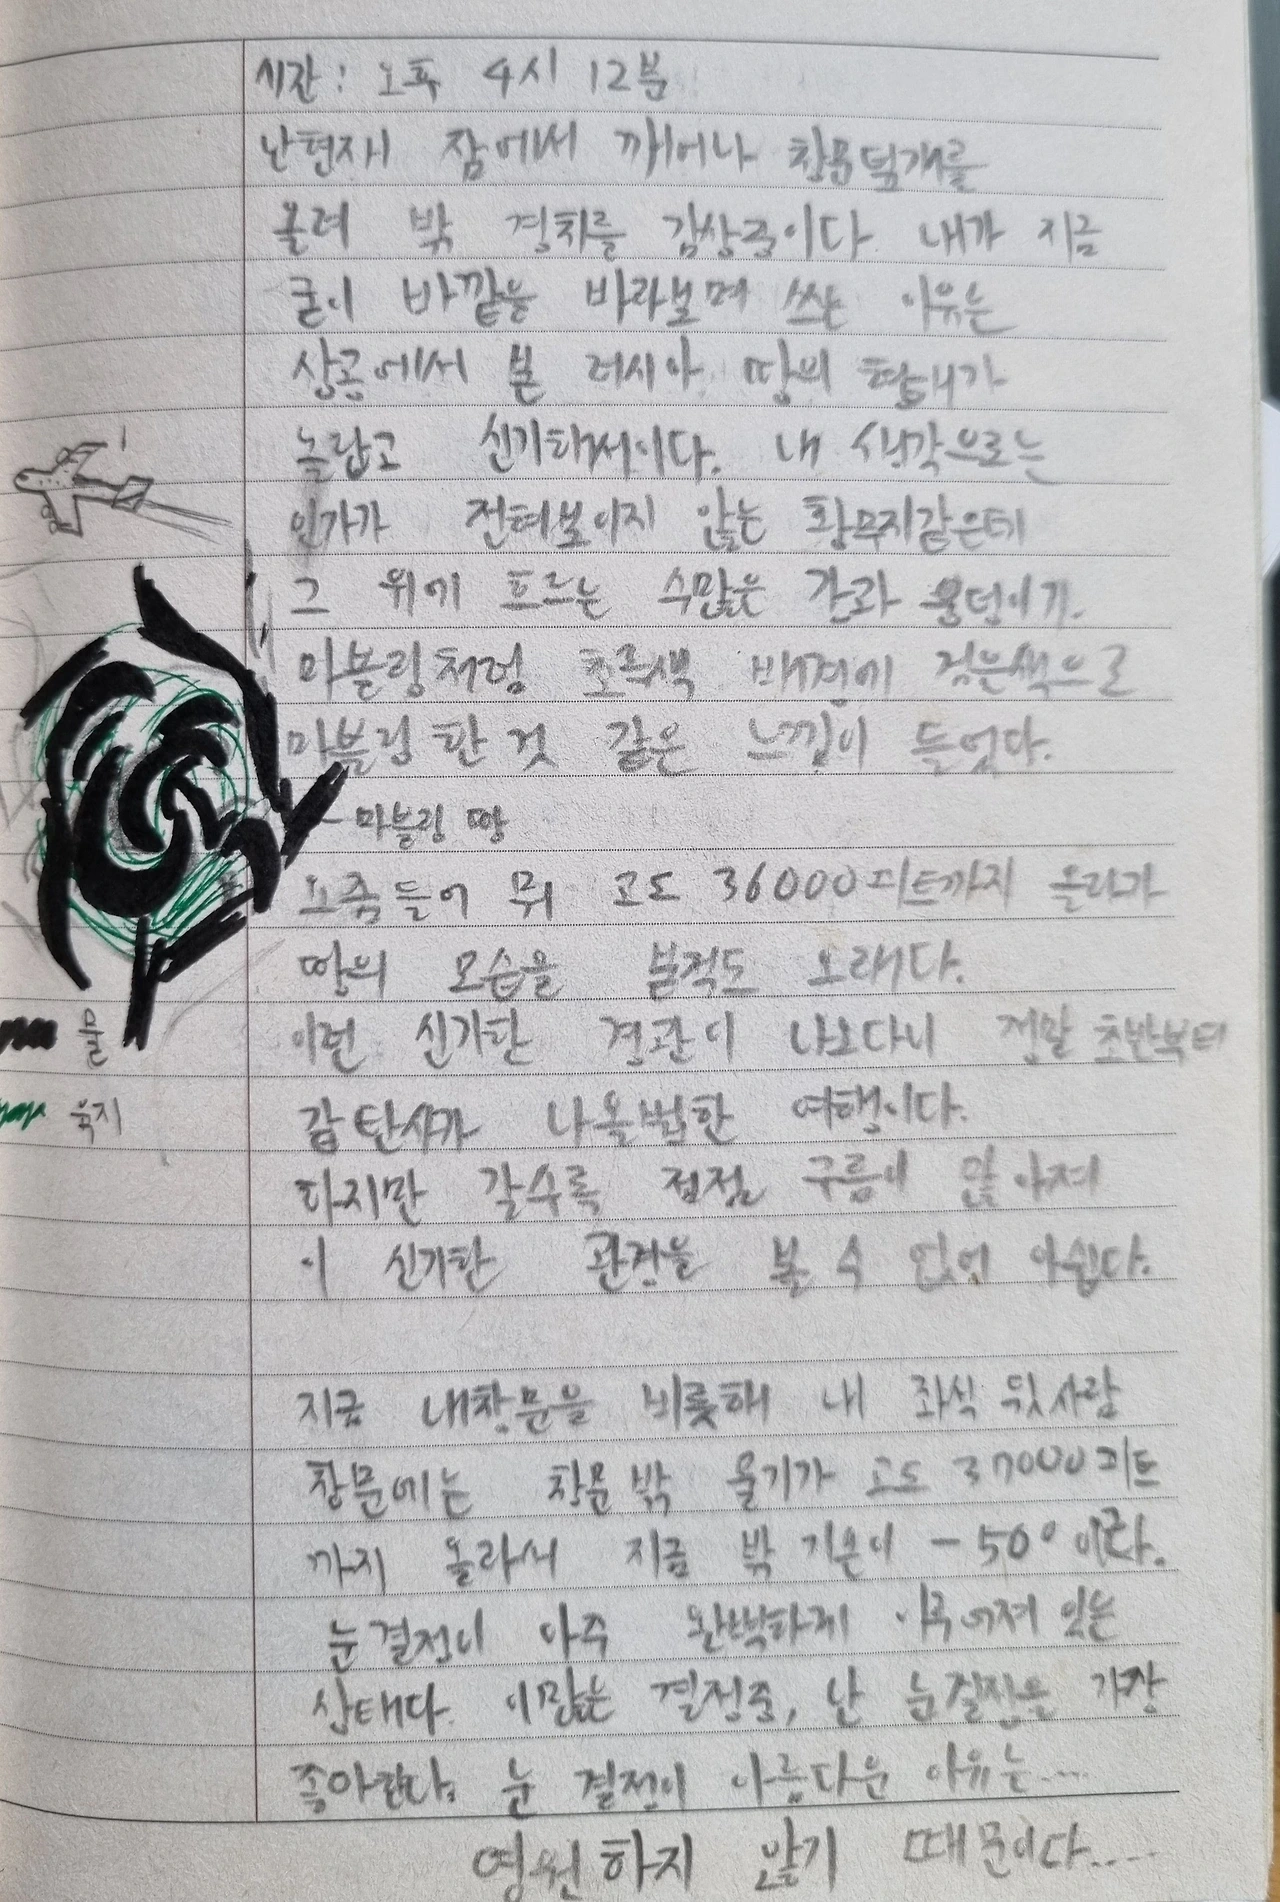 시간 : 오후 4시 12분
난현재 잠에서 깨어나 창문덮개를
올려 밖 경치를 감상중이다 내가 지금
굳이 바깥을 바라보며 쓰는 이유는
상공에서 본 러시아 땅의 형태가
놀랍고 신기해서이다. 내 생각으로는
인가가 전혀보이지 않는 황무지같은데
그 위에 흐르는 수많은 강과 웅덩이가.
마블링처럼 초록색 배경에 검은색으로
마블링한 것 같은 느낌이 들었다.
마블링 땅
요즘들어 뭐 고도 36000피트까지 올라가
땅의 모습을 본적도 오래다.
물 이런 신기한 경관이 나오다니 정말 초반부터
육지 감탄사가 나올법한 여행이다.
하지만 갈수록 점점 구름이 많아져
이 신기한 관경을 볼 수 없어 아쉽다.
지금 내창문을 비롯해 내 좌석 뒷사람
창문에는 창문 밖 물기가 고도 37000피트
까지 올라서 지금 밖 기온이 -50°이라.
눈결정이 아주 완벽하게 이루어져 있는
상태다. 이많은 결정중, 난 눈결정을 가장
좋아한다. 눈 결정이 아름다운 이유는....
영원하지 않기 때문이다....